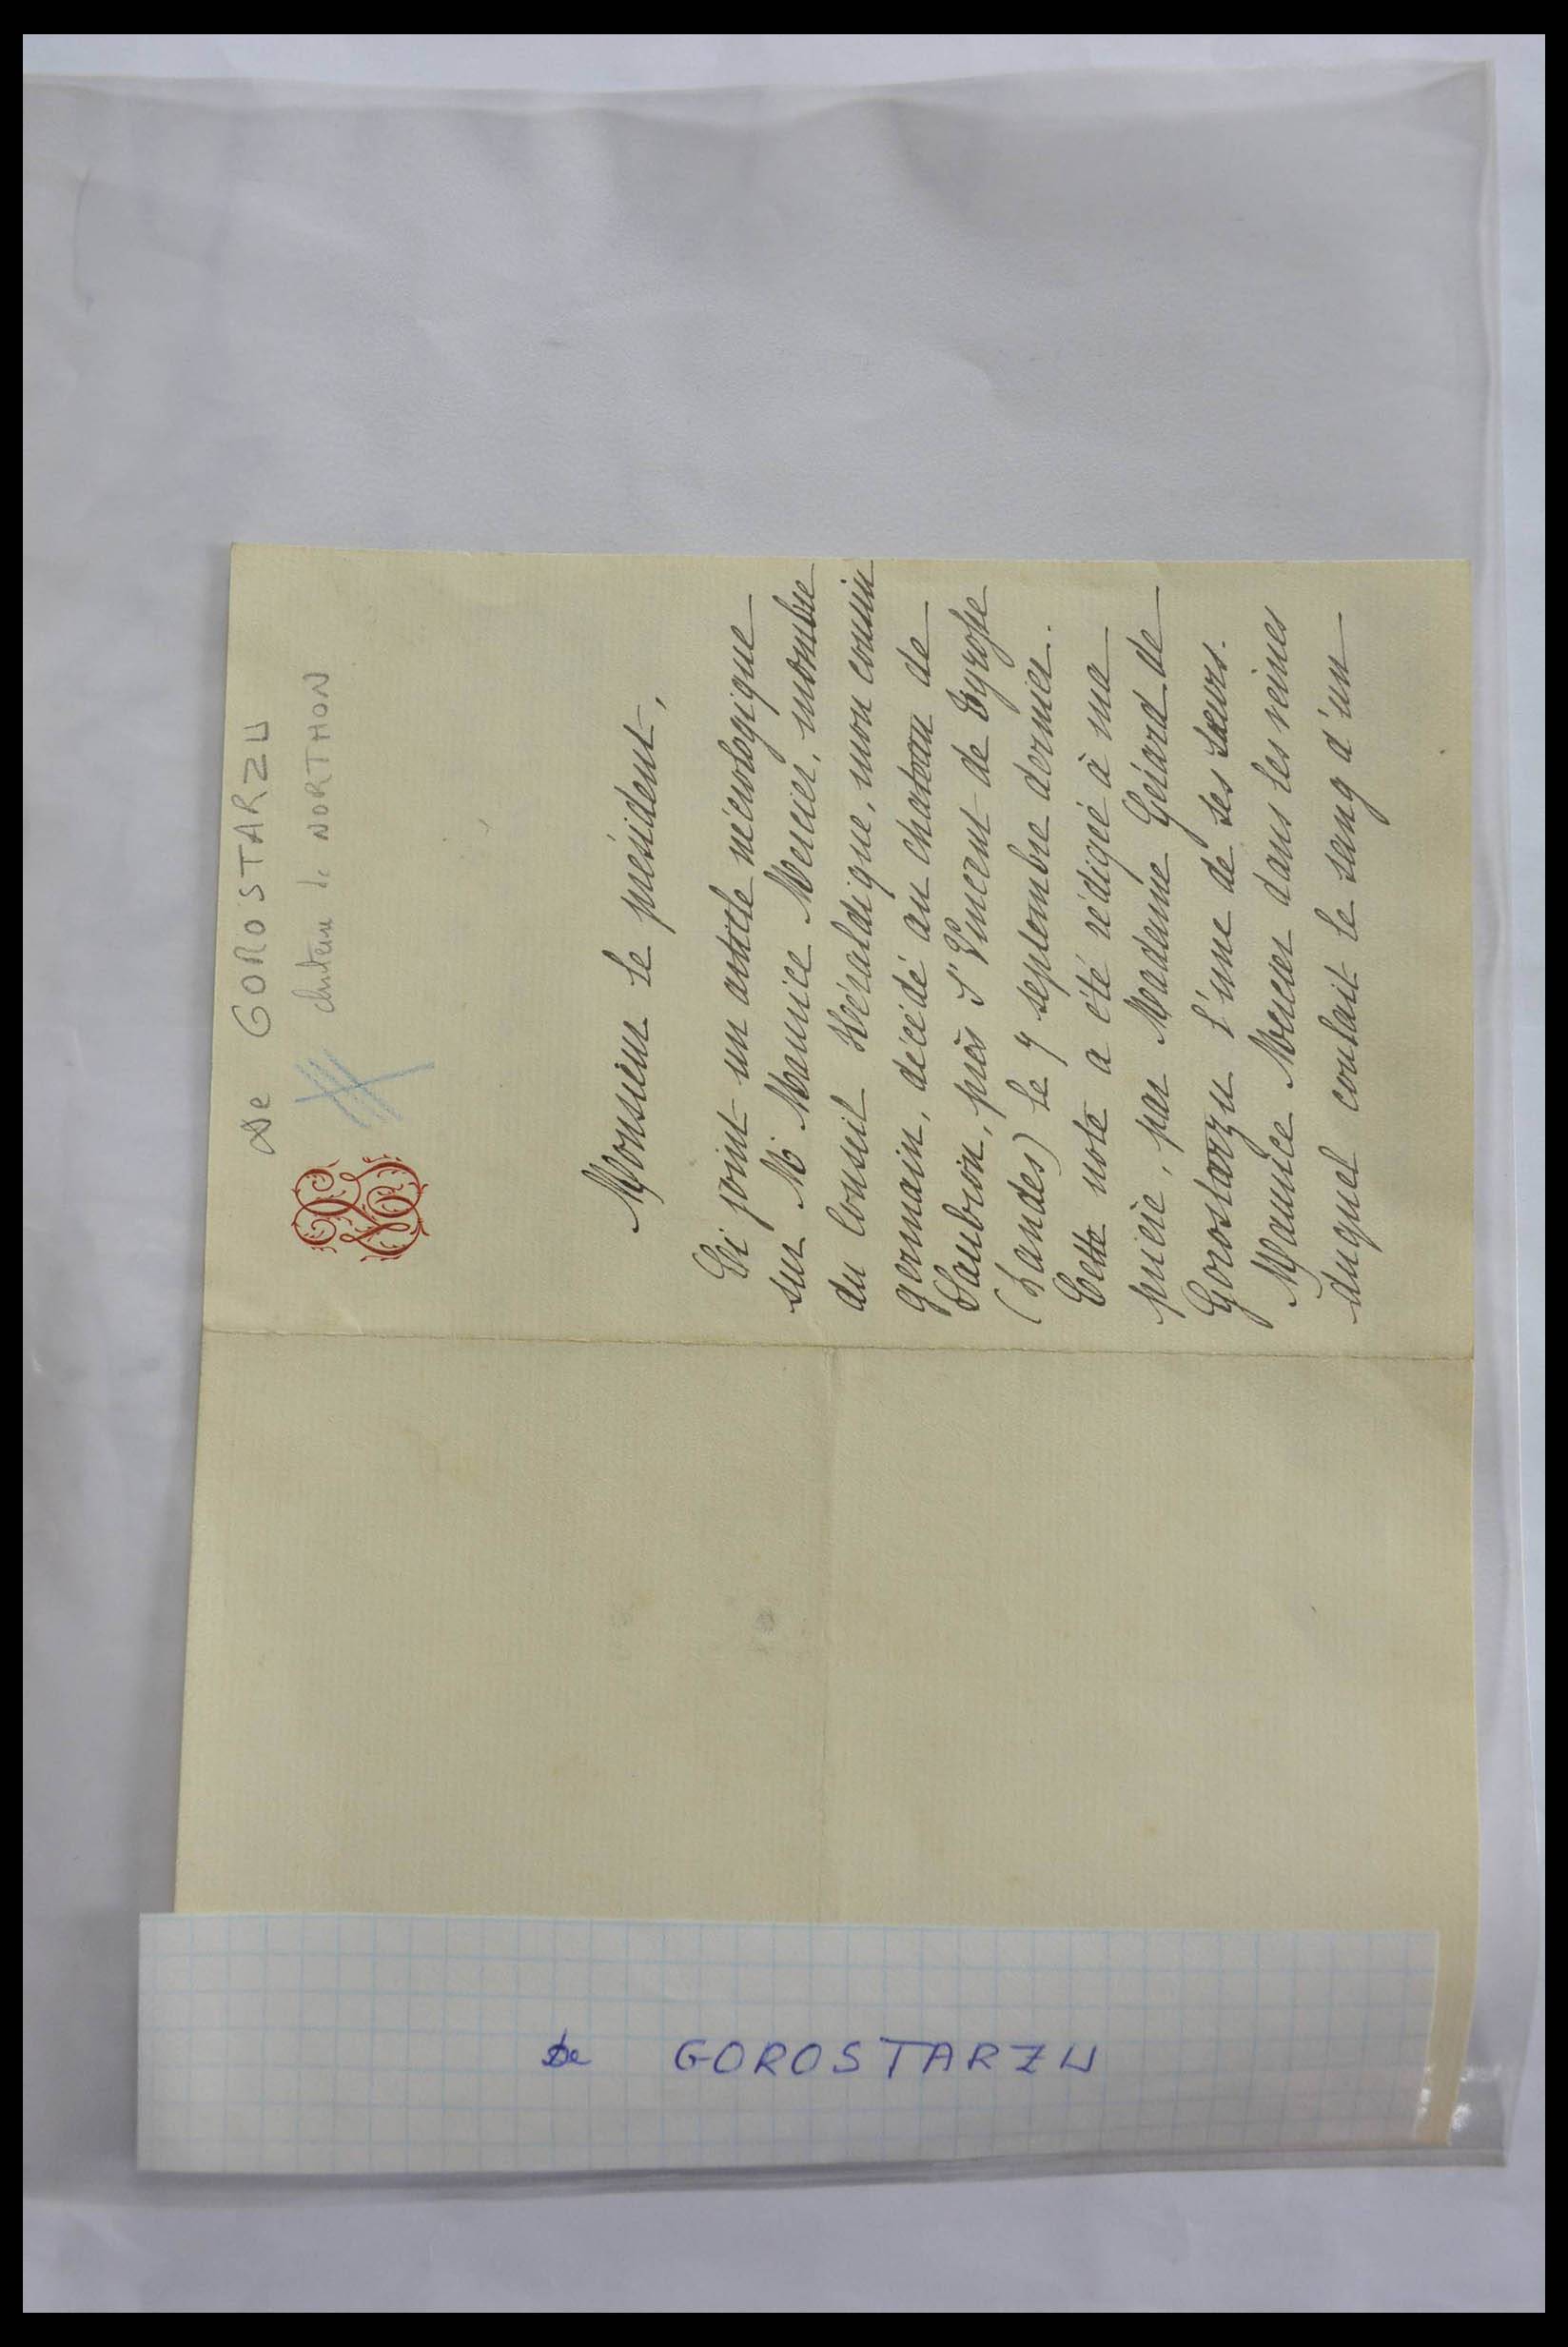 De GOROSTARZU
de NORTHON
Monsieur le président,
Ci joint un article nécrologique
sur Mr Maurice Mercier, membre
du Conseil Héraldique, mon cousin
germain, décédé au chateau de
Saubion, près St Vincent de Tyrosse
(Landes) le 7 septembre dernier.
Cette note a été rédigée à ma
prière, par Madame Gérard de
Gorostarzu l'une de ses sœurs.
Maurice Mercier dans les veines
duquel coulait le sang d'un
De GOROSTARZU